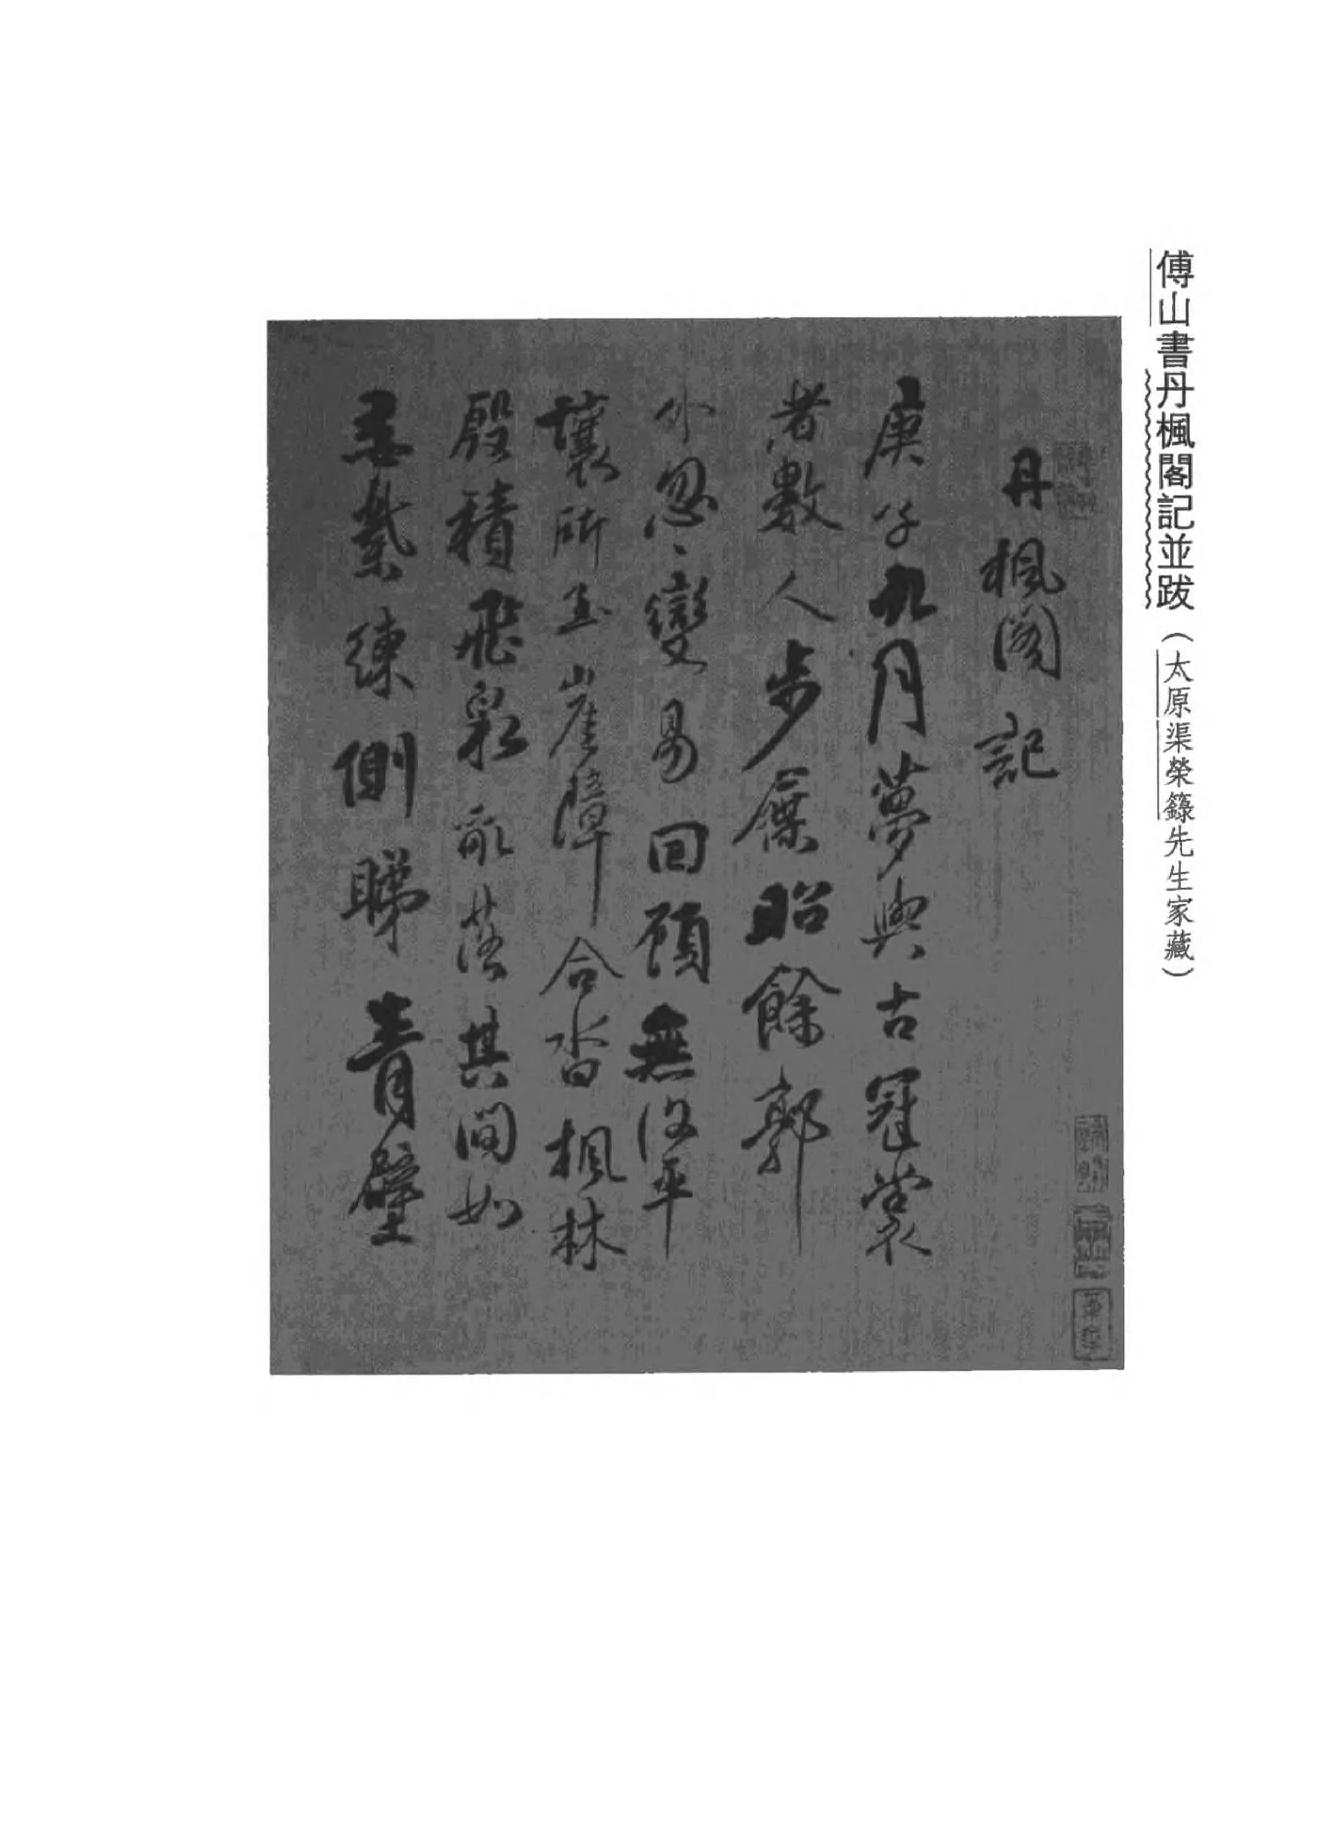 傅山書丹楓閣記並跋（太原渠榮籙先生家藏）
丹楓閣記
庚子九月夢與古冠裳
者數人步屧昭餘郭
外忽〻變易回顧無復平
壤所至崖障合沓楓林
殷積飛泉亂落其間如
縈練側睇青壁